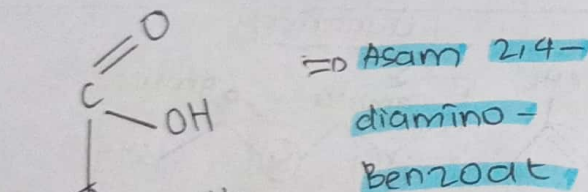 O
C
OH
⇒ Asam 2,4-
diamino-
Benzoat